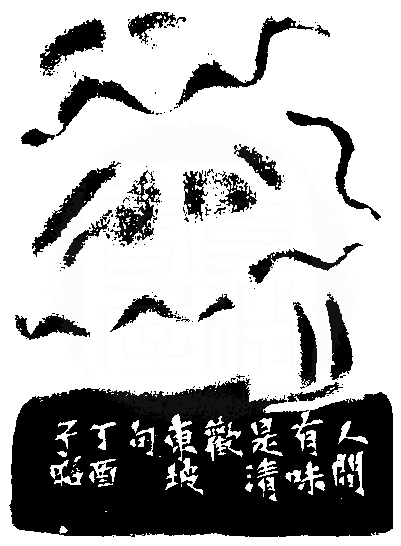 人間
有味
是清
歡
東坡
句
丁酉
子